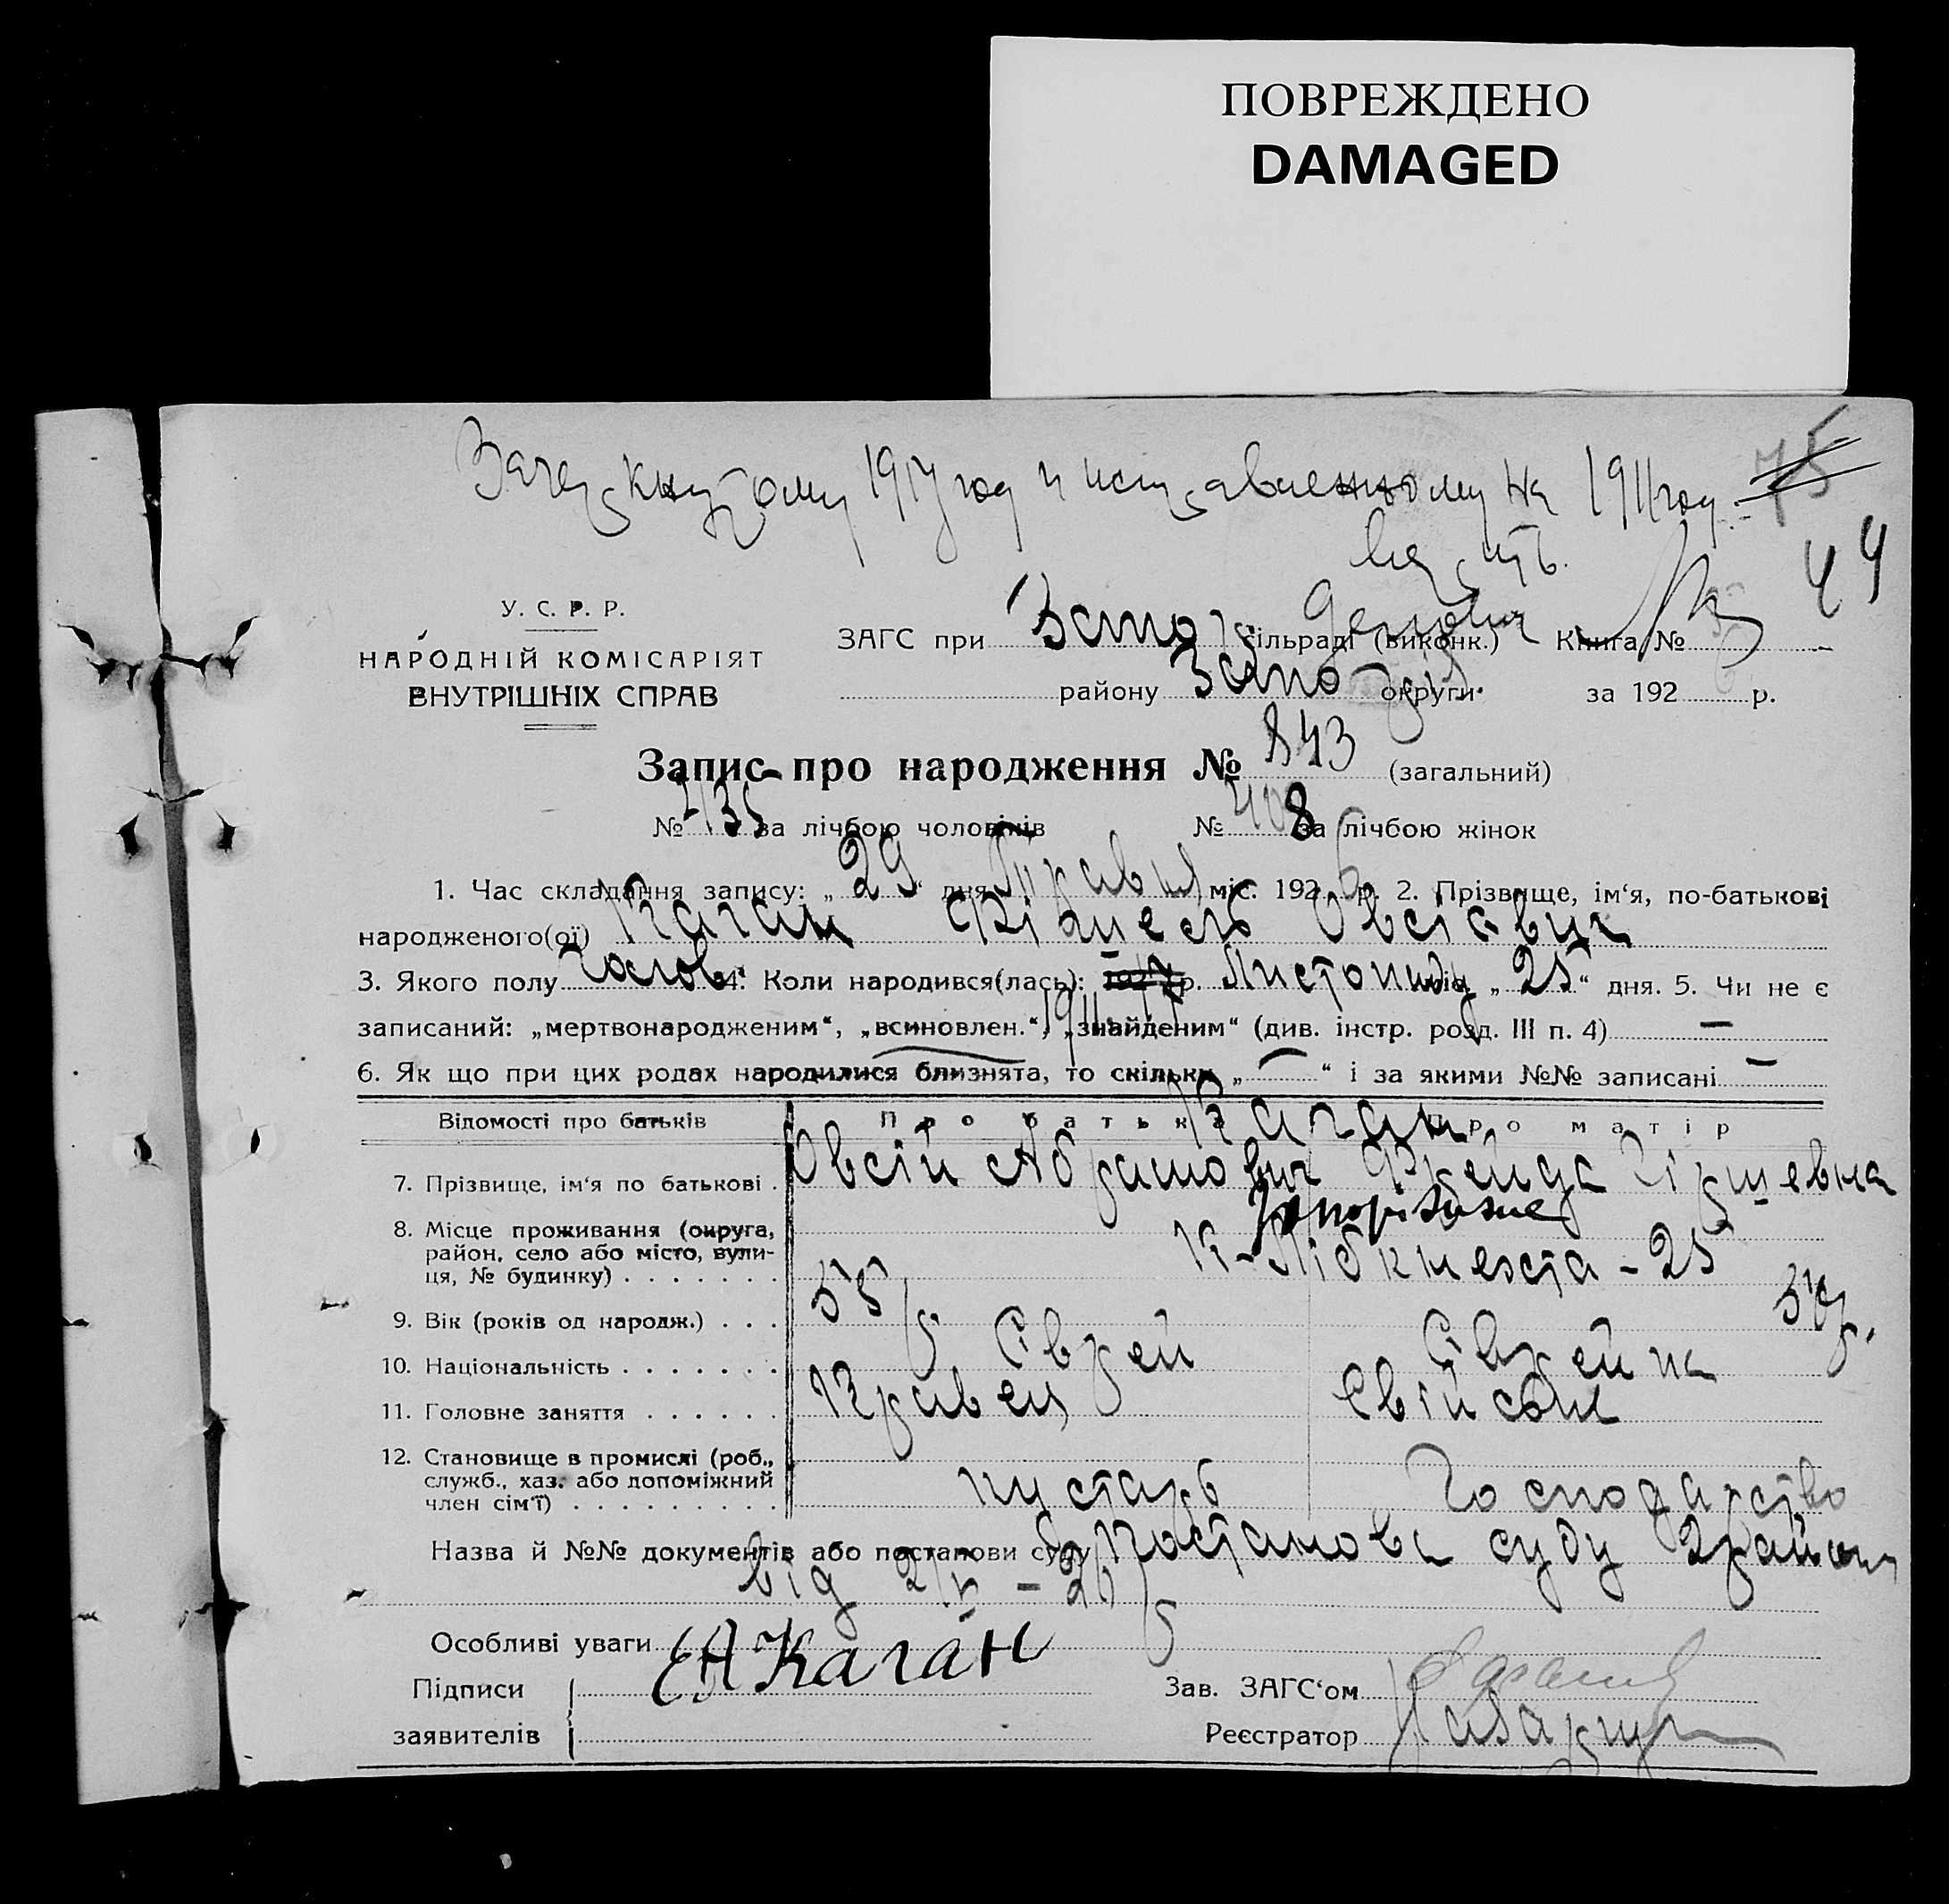 ПОВРЕЖДЕНО
DAMAGED
Зачеркнутому 1917 год и исправленному на 1911 год
верить.
75
44
У. С. Р. Р.
НАРОДНІЙ КОМІСАРІЯТ
ВНУТРІШНІХ СПРАВ
ЗАГС при сільраді (виконк.) Книга №
району Запо округи за 192 р.
Запис про народження № 843 (загальний)
№ 435 за лічбою чоловіків № 408 за лічбою жінок
1. Час складання запису: „29“ дня Травня міс. 1926 р. 2. Прізвище, ім‘я, по-батькові
народженого(ої) Каган Фішель Овсієвич
3. Якого полу Чолов. 4. Коли народився(лась): 1917 р. Листопада міс. „25“ дня. 5. Чи не є
1911
записаний: „мертвонародженим“, „всиновлен.“, „знайденим“ (див. інстр. розд. III п. 4) —
6. Як що при цих родах народилися близнята, то скільки „—“ і за якими №№ записані —
Відомості про батьків Про батька Про матір
Каган
7. Прізвище, ім‘я по батькові . Овсій Абрамович Фрейда Гіршевна
8. Місце проживання (округа, район, село або місто, вулиця, № будинку) . . . . . . . Запоріжжє
К-Лібкнехта - 25
9. Вік (років од народж.) . . . 55 р. 54 р.
10. Національність . . . . . . . Єврей Єврейка
11. Головне заняття . . . . . . Кравець
12. Становище в промислі (роб., служб., хаз. або допоміжний член сім‘ї) . . . . . . . . . кустарь Господарство
Назва й №№ документів або постанови суду Постанова суду 2 району
від
Особливі уваги
Підписи заявителів ЕА Каган
Зав. ЗАГС‘ом
Реєстратор